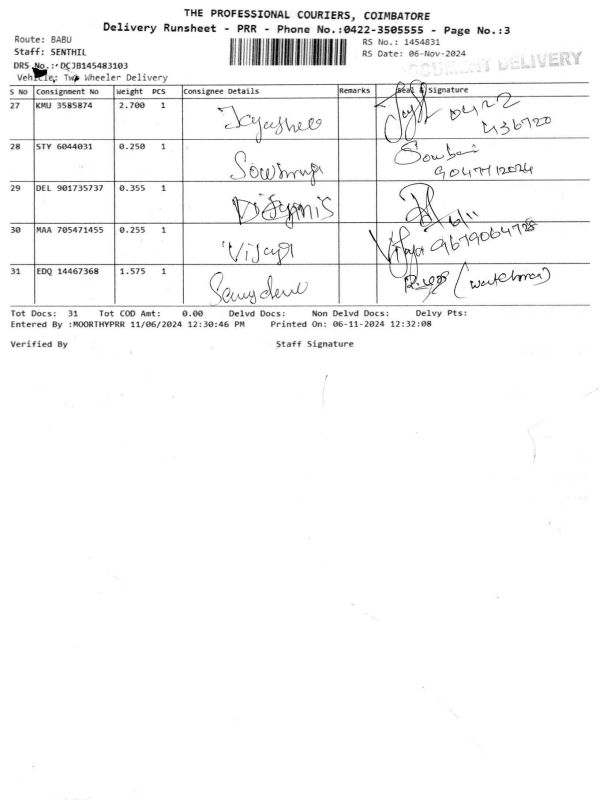 THE PROFESSIONAL COURIERS, COIMBATORE
Delivery Runsheet - PRR - Phone No.:0422-3505555 - Page No.:3
Route: BABU
RS No.: 1454831
Staff: SENTHIL
RS Date: 06-Nov-2024
DOCUMENT DELIVERY
DRS No.: DCJB145483103
Vehicle: Two Wheeler Delivery
S No Consignment No Weight PCS Consignee Details Remarks Seal & Signature
27 KMU 3585874 2.700 1 Jayashee 0422
436720
28 STY 6044031 0.250 1 Sowmya
29 DEL 901735737 0.355 1
30 MAA 705471455 0.255 1 Vijaya Vijaya 9679064728
31 EDQ 14467368 1.575 1 (watchman)
Tot Docs: 31 Tot COD Amt: 0.00 Delvd Docs: Non Delvd Docs: Delvy Pts:
Entered By :MOORTHYPRR 11/06/2024 12:30:46 PM Printed On: 06-11-2024 12:32:08
Verified By Staff Signature